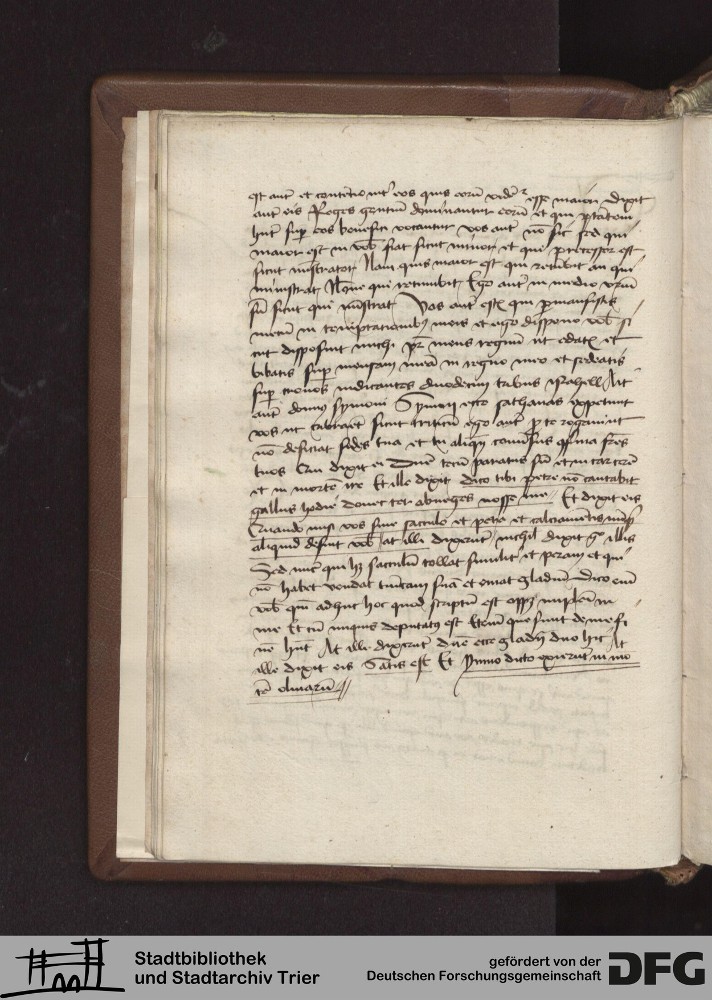 est aut et contentio int eos quis eorū videt esse maior Dixit
aut eis Reges gentium dominantur eorū et qui ptatem
hnt sup eos benefici vocantur vos aut nō sic sed qui
maior est in vob fiat sicut minor et qui precessor est
sicut ministrator Nam quis maior est qui recūbit an qui
ministrat Nōne qui recumbit Ego aut in medio vrm
sū sicut qui mistrat Vos aut estis qui pmansistis
mecū in temptationibus meis et ego dispono vob si
cut disposuit michi pr meus regnū ut edatis et
bibatis sup mensam meā in regno meo et sedeatis
sup tronos iudicantes duodecim tribus israhell Ait
aut dominus symoni Symon ecce sathanas expetiuit
vos ut cribraret sicut triticū ego aut p te rogaui ut
nō deficiat fides tua et tu aliqn conuersus confirma frēs
tuos Qui dixit ei Dnē tecū paratus sū et in carcerē
et in mortē ire Et ille dixit dico tibi petre nō cantabit
gallus hodie donec ter abneges nosse me Et dixit eis
Quando misi vos sine sacculo et pera et calciamētis nūqd
aliquid defuit vob at illi dixerūt nichil dixit g illis
Sed nūc qui hz sacculū tollat similit et peram et qui
nō habet vendat tunicam suā et emat gladiū Dico em
vob qm adhuc hoc quod scriptū est oportz impleri in
me Et cū iniquis deputatus est Etem que sunt de me fi
nē hnt At illi dixerūt dnē ecce gladij duo hic At
ille dixit eis Satis est Et ymno dicto exierūt in mo
tē oliuarū
Stadtbibliothek
und Stadtarchiv Trier
gefördert von der
Deutschen Forschungsgemeinschaft DFG